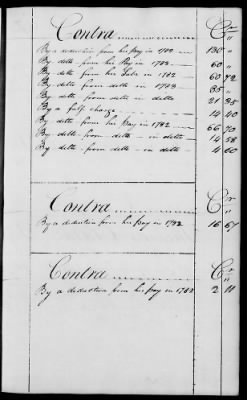 Contra Cr
By a deduction from his pay in 1782 130 "
By ditto from his Pay in 1783 60 "
By ditto from his Sub. in 1782 60 72
By ditto from ditto in 1783 35 "
By ditto from ditto in ditto 21 35
By a half 14 40
By ditto from his Pay in 1782 66 70
By ditto from ditto in ditto 14 58
By ditto from ditto in ditto 4 60
Contra Cr
By a deduction from his pay in 1782 16 67
Contra Cr
By a deduction from his pay in 1783 2 11